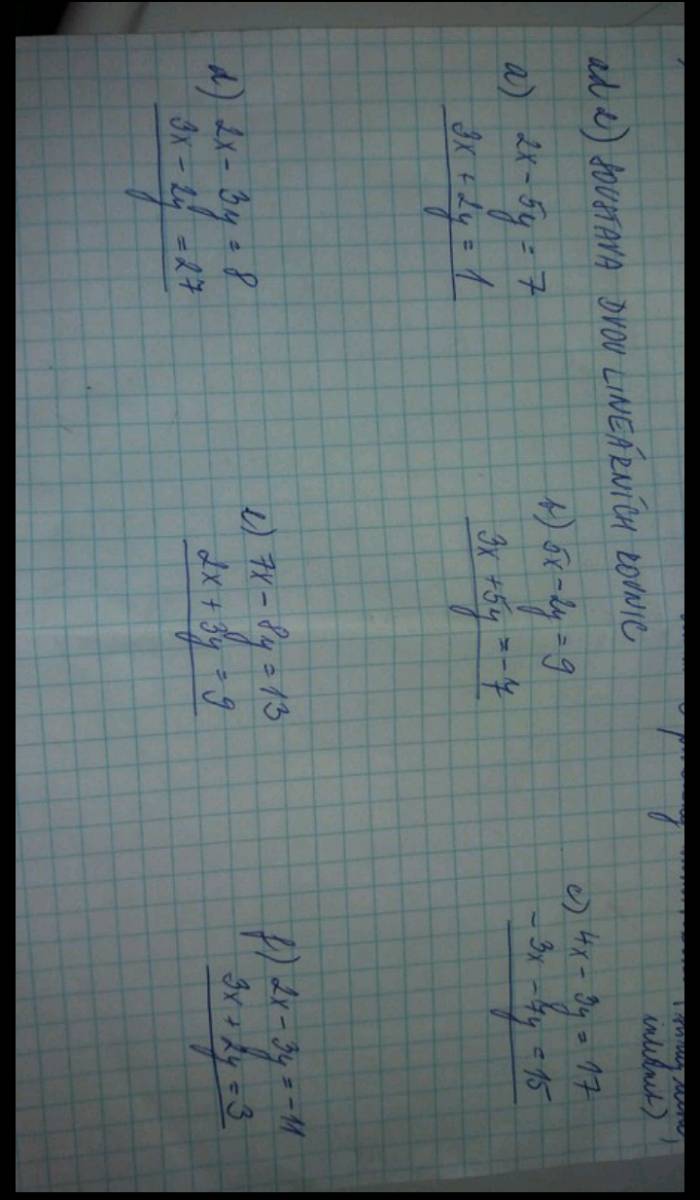 ad 2) SOUSTAVA DVOU LINEÁRNÍCH ROVNIC
a) 2x - 5y = 7
3x + 2y = 1
b) 5x - 2y = 9
3x + 5y = -7
c) 4x - 3y = 17
-3x - 7y = 15
d) 2x - 3y = 8
3x - 2y = 27
e) 7x - 8y = 13
2x + 3y = 9
f) 2x - 3y = -11
3x + 2y = 3